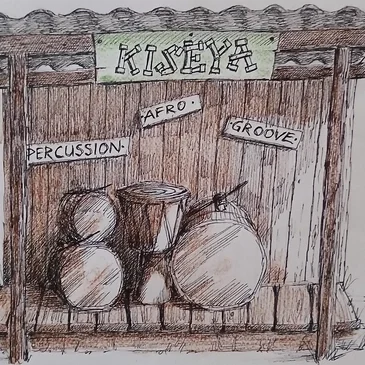 KISEYA
AFRO.
GROOVE.
PERCUSSION.